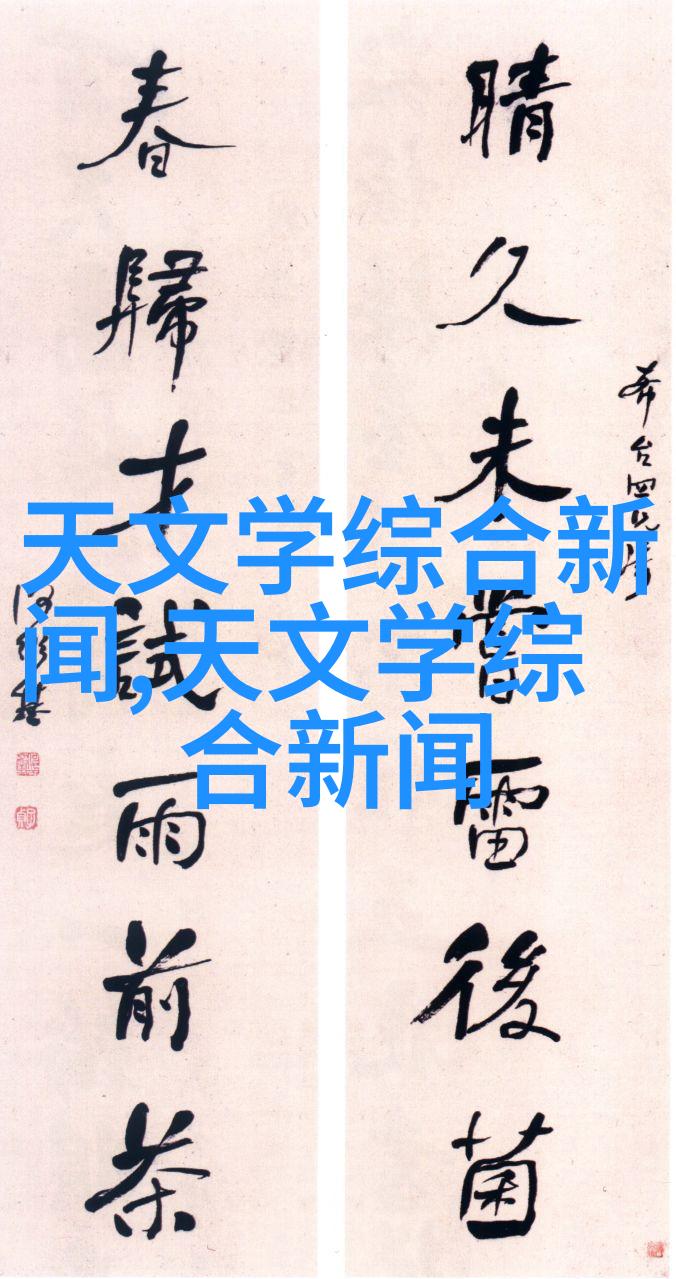 晴久未嘗雷後菌
春歸才試雨前茶
天文学综合新
闻,天文学综
合新闻